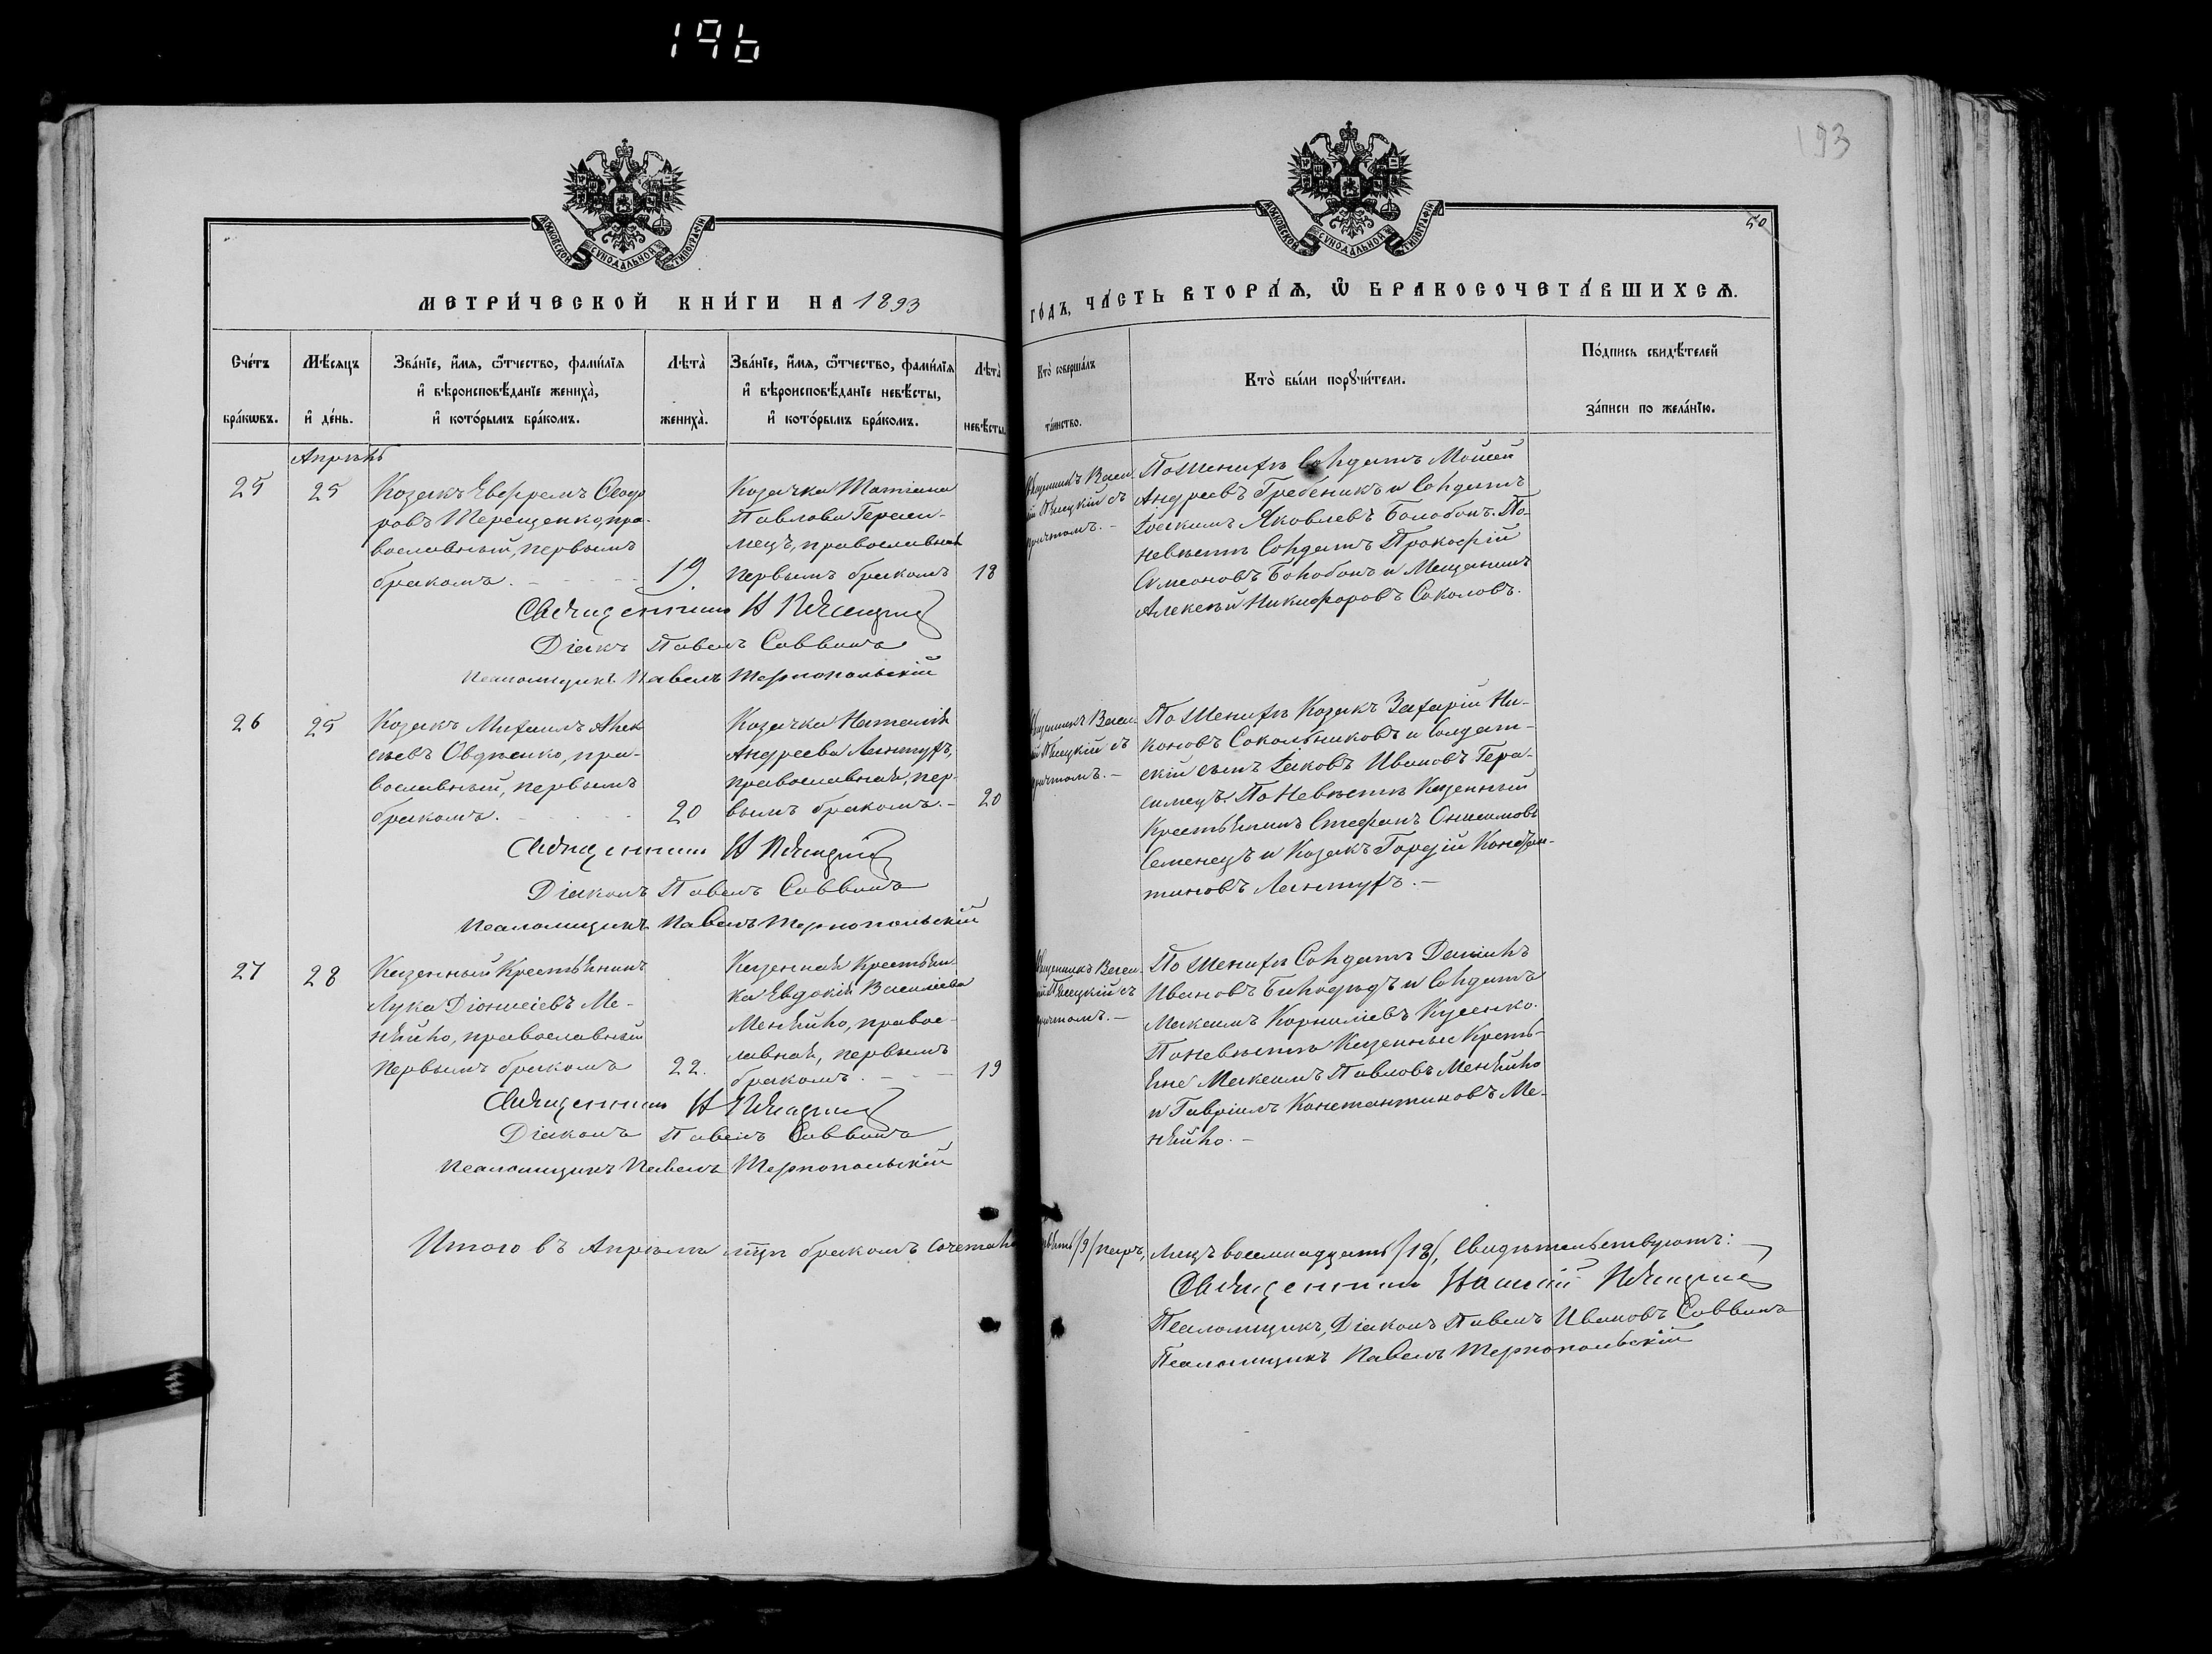 196
193
50
МОСКОВСКОЙ СУНОДАЛЬНОЙ ТИПОГРАФІИ
МОСКОВСКОЙ СУНОДАЛЬНОЙ ТИПОГРАФІИ
МЕТРИ́ЧЕСКОЙ КНИ́ГИ НА 1893
ГО́ДЪ, ЧА́СТЬ ВТОРА́Ѧ, Ѽ БРАКОСОЧЕТА́ВШИХСѦ.
Сче́тъ
бра́кѡвъ.
Мѣ́сяцъ
и҆ де́нь.
Зва́нїе, и҆́мѧ, ѻ҆́тчество, фами́лїѧ
и҆ вѣроисповѣ́данїе жениха̀,
и҆ кото́рымъ бра́комъ.
Лѣта̀
жениха̀.
Зва́нїе, и҆́мѧ, ѻ҆́тчество, фами́лїѧ
и҆ вѣроисповѣ́данїе невѣ́сты,
и҆ кото́рымъ бра́комъ.
Лѣта̀
невѣ́сты.
Кто̀ соверша́лъ
та́инство.
Кто̀ бы́ли порꙋчи́тели.
По́дпись свидѣ́телей
за́писи по жела́нїю.
Апрѣль
25
25
Козакъ Евфремъ Сводо
ровъ Терещенко, пра-
вославный, первымъ
бракомъ.
19
Козачка Татіана
Павлова Гераси-
мецъ, православная
первымъ бракомъ
18
Священникъ Васи-
съ
причтомъ.
По Женихѣ Солдатъ Моѵсей
Андреевъ Гребеникъ и Солдатъ
Іоакимъ Яковлевъ Болобонъ. По-
невѣстѣ Солдатъ Прокофій
Симеоновъ Болобонъ и Мещанинъ
Алексѣй Никифоровъ Соколовъ.
Священникъ
Діакъ Павелъ Саввинъ
Псаломщикъ Павелъ Тернопольскій
26
25
Козакъ Михаилъ Алек
сѣевъ Овдѣенко, пра-
вославный, первымъ
бракомъ.
20
Козачка Наталія
Андреева Лантухъ,
православная, пер-
вымъ бракомъ.
20
Священникъ Васи-
съ
причтомъ.
По Женихѣ Козакъ Захарій Ни-
коновъ Сокольниковъ и Солдат-
скій сынъ Іаковъ Ивановъ Гера-
симецъ. По Невѣстѣ Казенный
Крестьянинъ Стефанъ Онисимовъ
Семенецъ и Козакъ Гордій Констан-
тиновъ Лантухъ.
Священникъ
Діаконъ Павелъ Саввинъ
Псаломщикъ Павелъ Тернопольскій
27
28
Казенный Крестьянинъ
Лука Діонисіевъ Ме-
няйло, православный
Первымъ бракомъ
22.
Казенная Крестьян
ка Евдокія Василіева
Меняйло, правос-
лавная, первымъ
бракомъ.
19
Священникъ Васи-
съ
причтомъ.
По Женихѣ Солдатъ Даніилъ
Ивановъ Билодѣдъ и Солдатъ
Максимъ Корниліевъ Кусенко.
По невѣстѣ Казенные Кресть-
яне Максимъ Павловъ Меняйло
и Гавріилъ Константиновъ Ме-
няйло.
Священникъ
Діаконъ Павелъ Саввинъ
Псаломщикъ Павелъ Тернопольскій
Итого въ Апрѣлѣ мцѣ бракомъ сочетало
/9/ паръ, лицъ восемнадцать /18/, Свидѣтельствуютъ:
Священникъ
Псаломщикъ, Діаконъ Павелъ Ивановъ Саввинъ
Псаломщикъ Павелъ Тернопольскій